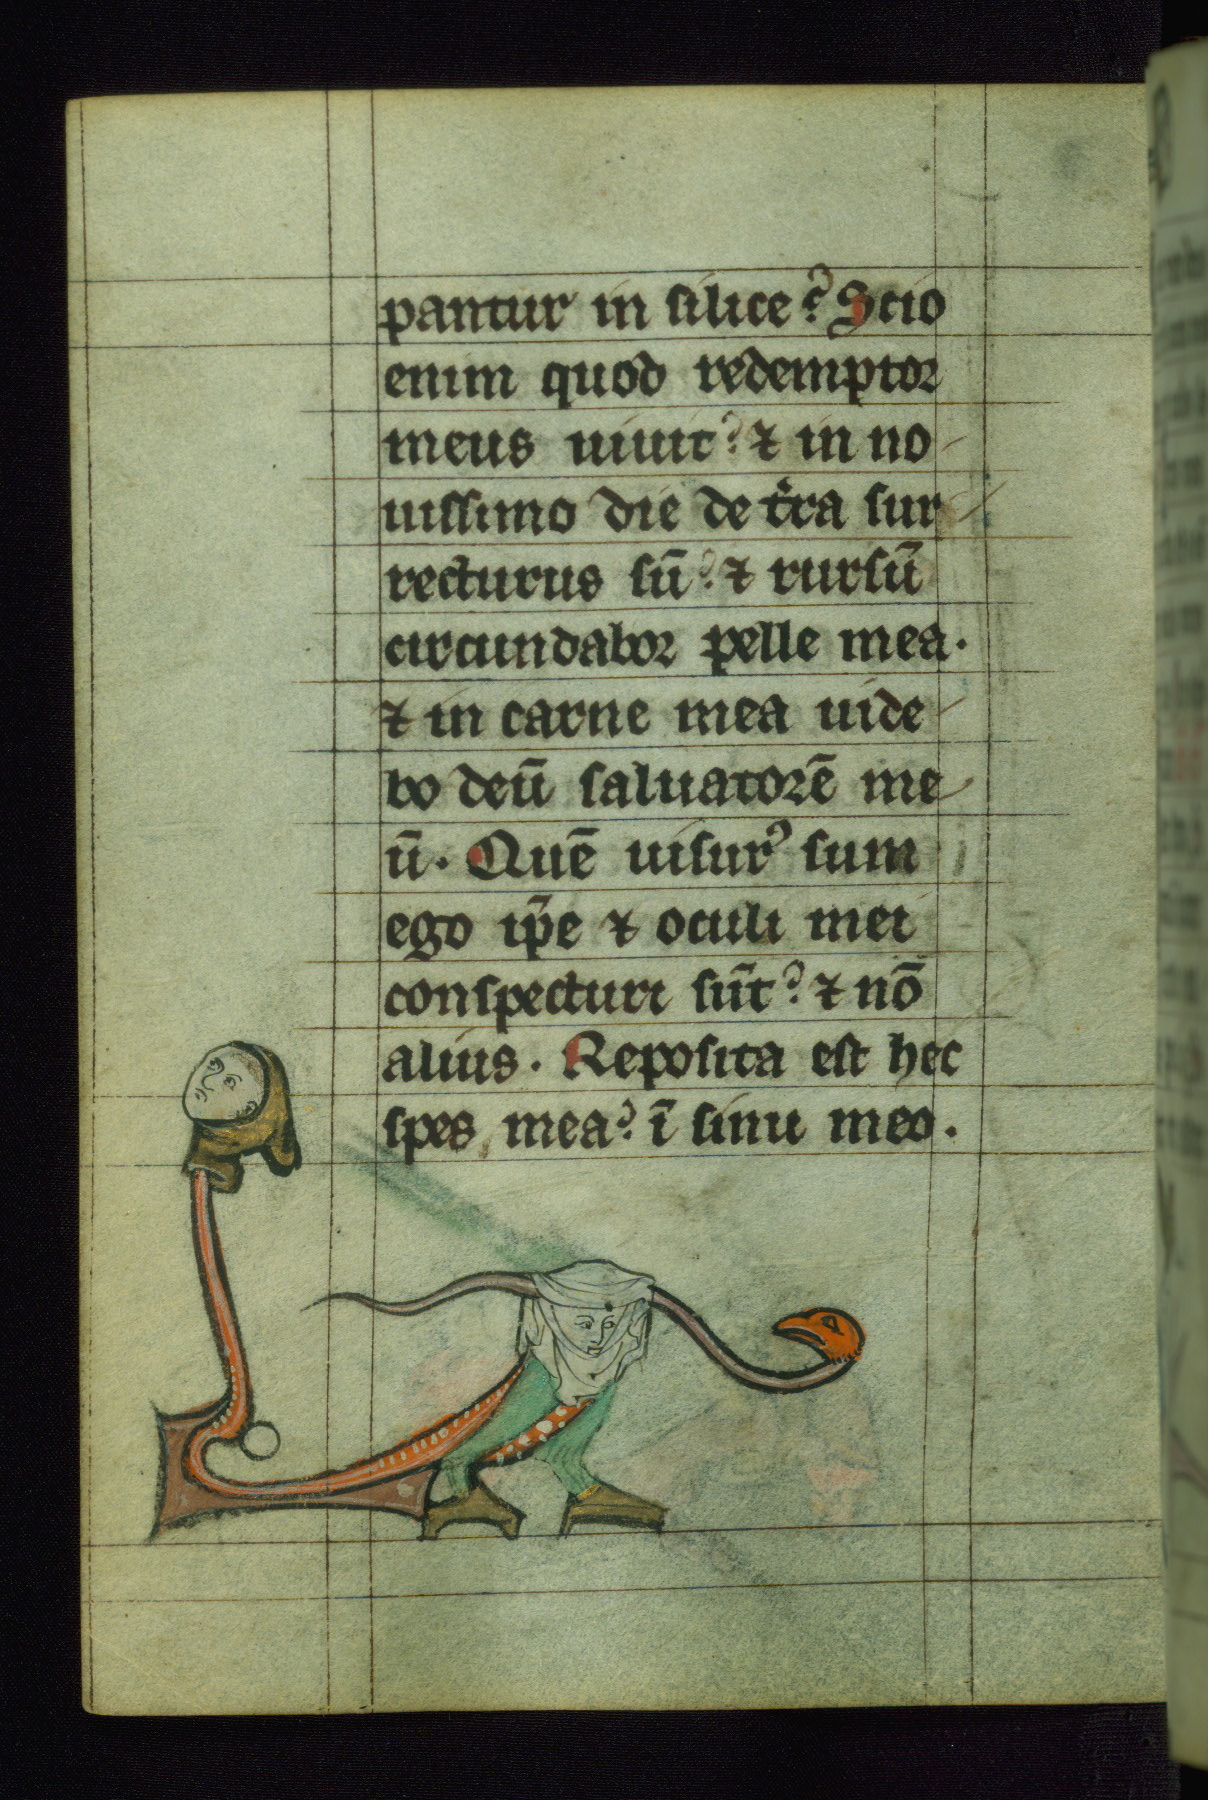 pantur in silice? Scio
enim quod redemptor
meus uiuit? ⁊ in no
uissimo die de t̄ra sur
recturus sū? ⁊ rursū
circundabor pelle mea.
⁊ in carne mea uide
bo deū saluatorē me
ū. Quē uisurꝰ sum
ego ip̄e ⁊ oculi mei
conspecturi sūt? ⁊ nō
alius. Reposita est hec
spes mea? ī sinu meo.